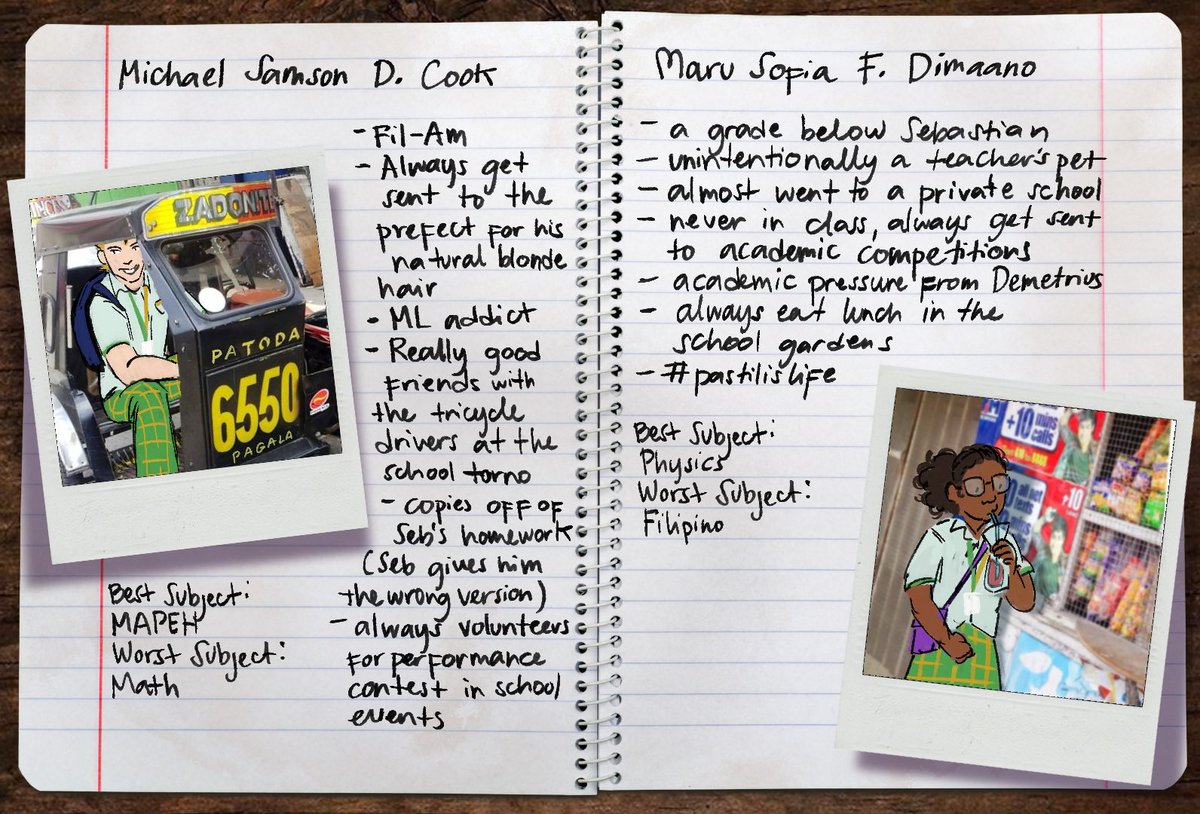 Michael Samson D. Cook
- Fil-Am
- Always get
sent to the
prefect for his
natural blonde
hair
- ML addict
- Really good
friends with
the tricycle
drivers at the
school torno
- copies off of
Seb's homework
(Seb gives him
the wrong version)
- always volunteers
for performance
contest in school
events
ZADONT
PATODA
6550
PAGALA
Best Subject:
MAPEH
Worst Subject:
Math
Maru Sofia F. Dimaano
- a grade below Sebastian
- unintentionally a teacher's pet
- almost went to a private school
- never in class, always get sent
to academic competitions
- academic pressure from Demetrius
- always eat lunch in the
school gardens
- #pastilislife
Best Subject:
Physics
Worst Subject:
Filipino
+10 mins
calls
+10